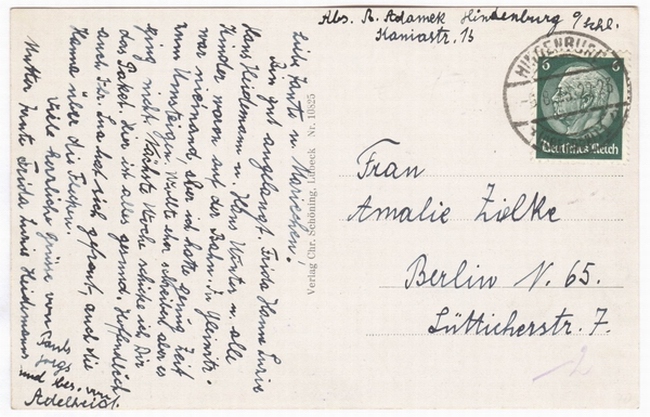 Abs. B. Adamek Hindenburg O/Schl.
Kaniastr. 1b
HINDENBURG
6 6
Deutsches Reich
Frau
Amalie Zielke
Berlin N. 65.
Lütticherstr. 7.
Verlag Chr. Schöning, Lübeck Nr. 10825
Liebe Tante u. Mariechen!
Bin gut angelangt. Frieda Hanne Lucie
Hans Heidemann u. Klons Günter u. alle
Kinder waren auf der Bahn. In Gleiwitz
war niemand, aber ich hatte genug Zeit
zum Umsteigen. Wollte ihr schreiben aber es
ging nicht. Nächste Woche schicke ich Dir
das Paket. Hier ist alles gesund. Hoffentlich
auch Ihr. hat sich gefreut, auch die
Hanne über die
Viele herzliche Grüsse von
Mutter Tante Frieda Lucie Heidemanns
Pauls
Jorgs
und bes. von
Adelheid.